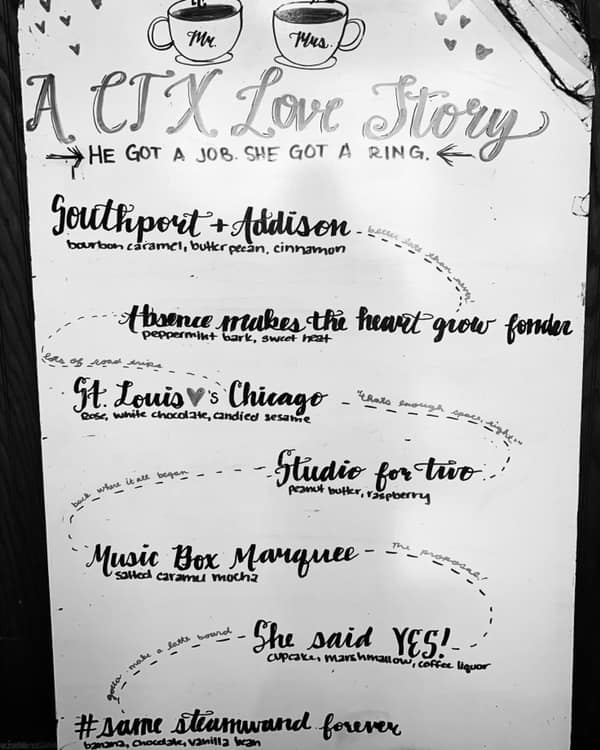 Mr. Mrs.
A CTX Love Story
HE GOT A JOB. SHE GOT A RING.
Southport + Addison
bourbon caramel, butter pecan, cinnamon
better late than never
Absence makes the heart grow fonder
peppermint bark, sweet heat
lots of road trips
St. Louis ♥'s Chicago
Rose, white chocolate, candied sesame
"thats enough space, right?"
Studio for two
peanut butter, raspberry
back where it all began
Music Box Marquee
salted caramel mocha
The proposal!
She said YES!
cupcake, marshmallow, coffee liquor
gotta make a latte bound
#same steamwand forever
banana, chocolate, vanilla bean